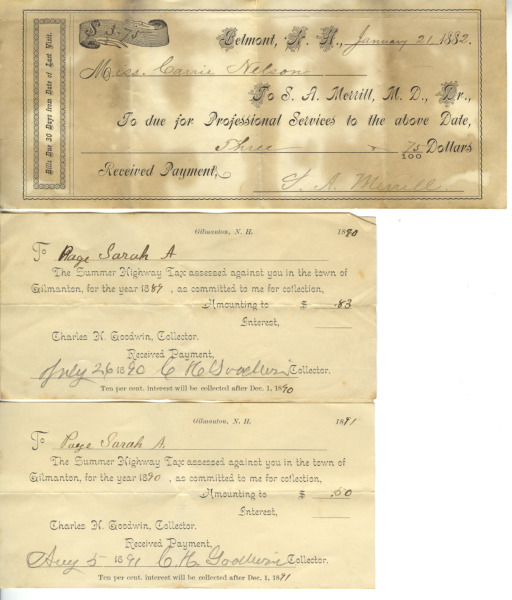 $3.75
Belmont, N. H., January 21 1882.
Miss. Carrie Nelson
To S. A. Merrill, M. D., Dr.,
To due for Professional Services to the above Date,
Three 75/100 Dollars
Received Payment, S. A. Merrill.
Bills Due 30 Days from Date of Last Visit.
Gilmanton, N. H. 1890
To Page Sarah A
The Summer Highway Tax assessed against you in the town of
Gilmanton, for the year 1889, as committed to me for collection,
Amounting to $ .83
Interest,
Charles H. Goodwin, Collector.
Received Payment,
July 26 1890 C H Goodwin Collector.
Ten per cent. interest will be collected after Dec. 1, 1890
Gilmanton, N. H. 1891
To Page Sarah A.
The Summer Highway Tax assessed against you in the town of
Gilmanton, for the year 1890, as committed to me for collection,
Amounting to $ .50
Interest,
Charles H. Goodwin, Collector.
Received Payment,
Aug 5 1891 C. H. Goodwin Collector.
Ten per cent. interest will be collected after Dec. 1, 1891